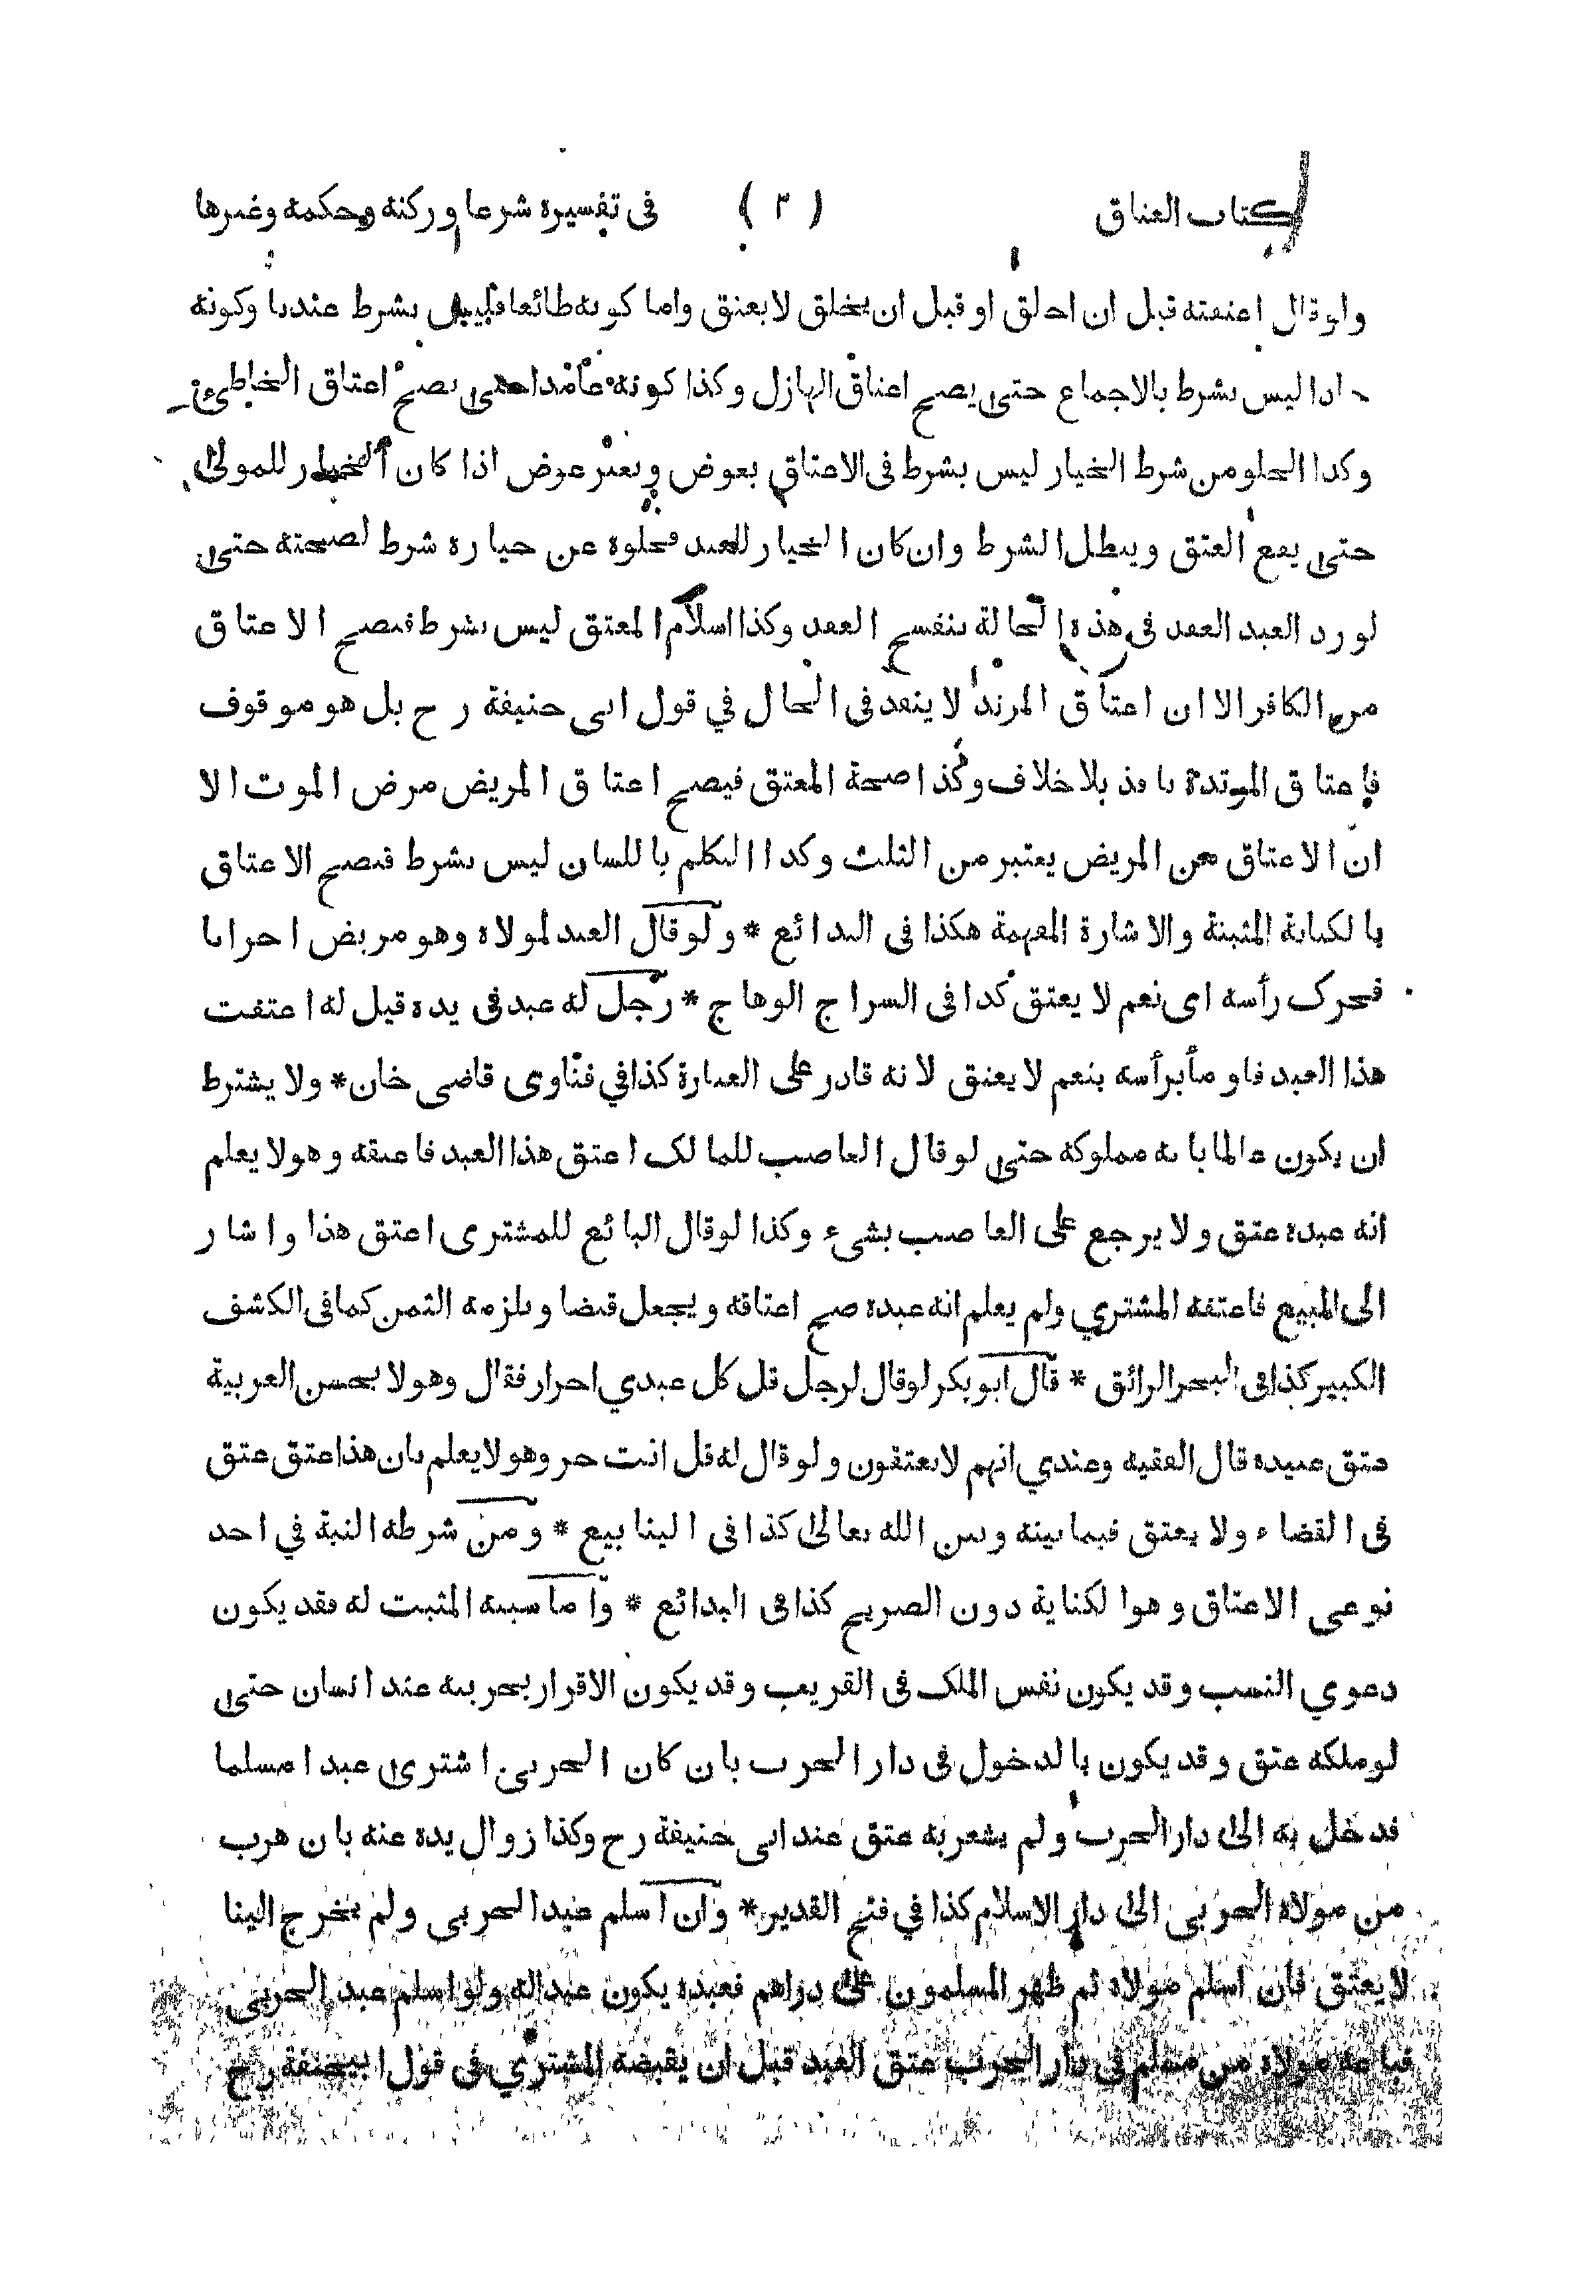 كتاب العتاق (٣) فى تفسيره شرعا وركنه وحكمه وغيرها
ولو قال اعتقته قبل ان اخلق او قبل ان يخلق لا يعتق واما كونه طائعا فليس بشرط عندنا وكونه
جادا ليس بشرط بالاجماع حتى يصح اعتاق الهازل وكذا كونه عامدا حتى يصح اعتاق الخاطئ
وكذا الخلو من شرط الخيار ليس بشرط فى الاعتاق بعوض وبغير عوض اذا كان الخيار للمولى
حتى يقع العتق ويبطل الشرط وان كان الخيار للعبد فخلوه عن خياره شرط لصحته حتى
لو رد العبد العقد فى هذه الحالة ينفسخ العقد وكذا اسلام المعتق ليس بشرط فيصح الاعتاق
من الكافر الا ان اعتاق المرتد لا ينفذ فى الحال في قول ابى حنيفة رح بل هو موقوف
فاعتاق المرتدة نافذ بلا خلاف وكذا صحة المعتق فيصح اعتاق المريض مرض الموت الا
ان الاعتاق من المريض يعتبر من الثلث وكذا التكلم باللسان ليس بشرط فيصح الاعتاق
بالكتابة المثبتة والاشارة المفهمة هكذا فى البدائع * ولو قال العبد لمولاه وهو مريض احر انا
فحرك رأسه اى نعم لا يعتق كذا فى السراج الوهاج * رجل له عبد فى يده قيل له اعتقت
هذا العبد فاومأ برأسه بنعم لا يعتق لانه قادر على العبارة كذا في فتاوى قاضى خان * ولا يشترط
ان يكون عالما بانه مملوكه حتى لو قال الغاصب للمالك اعتق هذا العبد فاعتقه وهو لا يعلم
انه عبده عتق ولا يرجع على الغاصب بشىء وكذا لو قال البائع للمشترى اعتق هذا واشار
الى المبيع فاعتقه المشتري ولم يعلم انه عبده صح اعتاقه ويجعل قبضا ويلزمه الثمن كما فى الكشف
الكبير كذا فى البحر الرائق * قال ابو بكر لو قال لرجل قل كل عبدي احرار فقال وهو لا يحسن العربية
عتق عبيده قال الفقيه وعندي انهم لا يعتقون ولو قال له قل انت حر وهو لا يعلم بان هذا عتق عتق
فى القضاء ولا يعتق فيما بينه وبين الله تعالى كذا فى الينابيع * ومن شرطه النية في احد
نوعى الاعتاق وهو الكناية دون الصريح كذا فى البدائع * واما سببه المثبت له فقد يكون
دعوي النسب وقد يكون نفس الملك فى القريب وقد يكون الاقرار بحريته عند انسان حتى
لو ملكه عتق وقد يكون بالدخول فى دار الحرب بان كان الحربى اشترى عبدا مسلما
فدخل به الى دار الحرب ولم يشعر به عتق عند ابى حنيفة رح وكذا زوال يده عنه بان هرب
من مولاه الحربى الى دار الاسلام كذا في فتح القدير * وان اسلم عبد الحربى ولم يخرج الينا
لا يعتق فان اسلم مولاه ثم ظهر المسلمون على دراهم فعبده يكون عبدا له ولو اسلم عبد الحربى
فباعه مولاه من مسلم فى دار الحرب عتق العبد قبل ان يقبضه المشتري فى قول ابيحنيفة رح